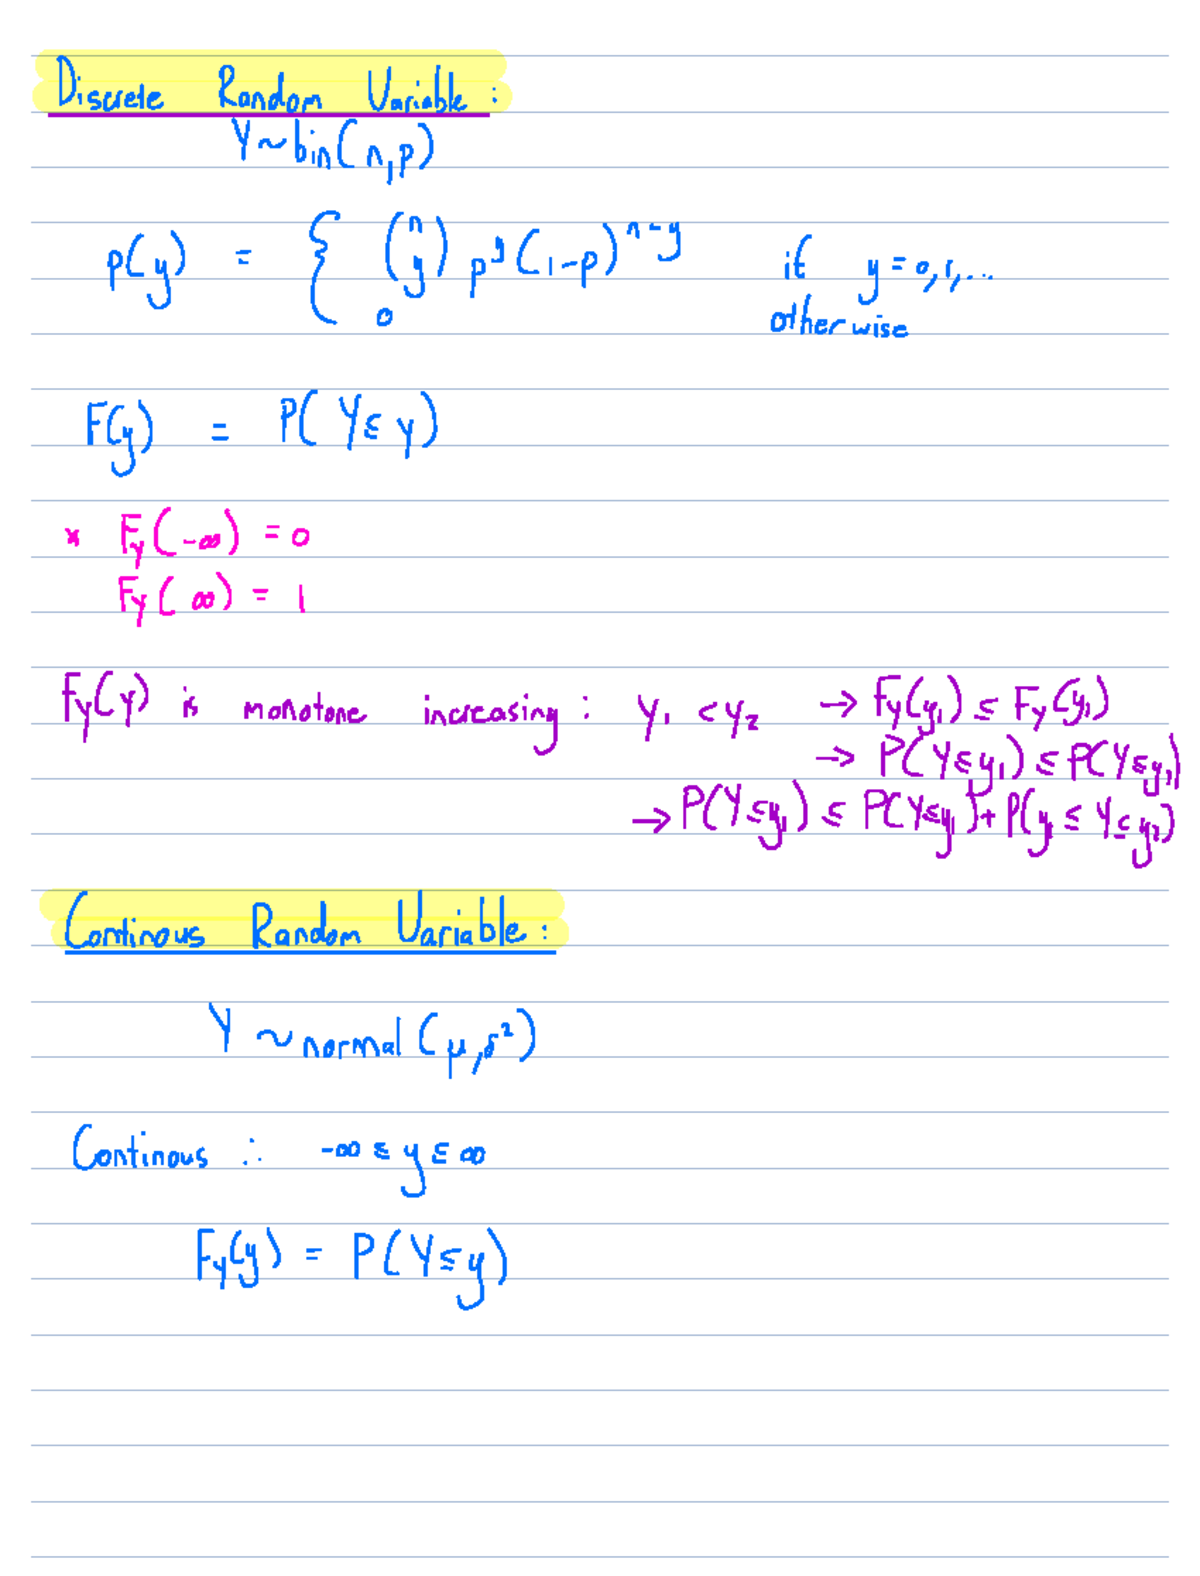 Discrete Random Variable:
Y ~ bin(n,p)
p(y) = { (n y) p^y (1-p)^{n-y} if y = 0,1,...
0 otherwise
F(y) = P(Y ≤ y)
* F_Y(-∞) = 0
F_Y(∞) = 1
F_Y(y) is monotone increasing: y₁ < y₂ → F_Y(y₁) ≤ F_Y(y₂)
→ P(Y ≤ y₁) ≤ P(Y ≤ y₂)
→ P(Y ≤ y₁) ≤ P(Y ≤ y₁) + P(y₁ ≤ Y ≤ y₂)
Continous Random Variable:
Y ~ normal(μ,σ²)
Continous ∴ -∞ ≤ y ≤ ∞
F_Y(y) = P(Y ≤ y)